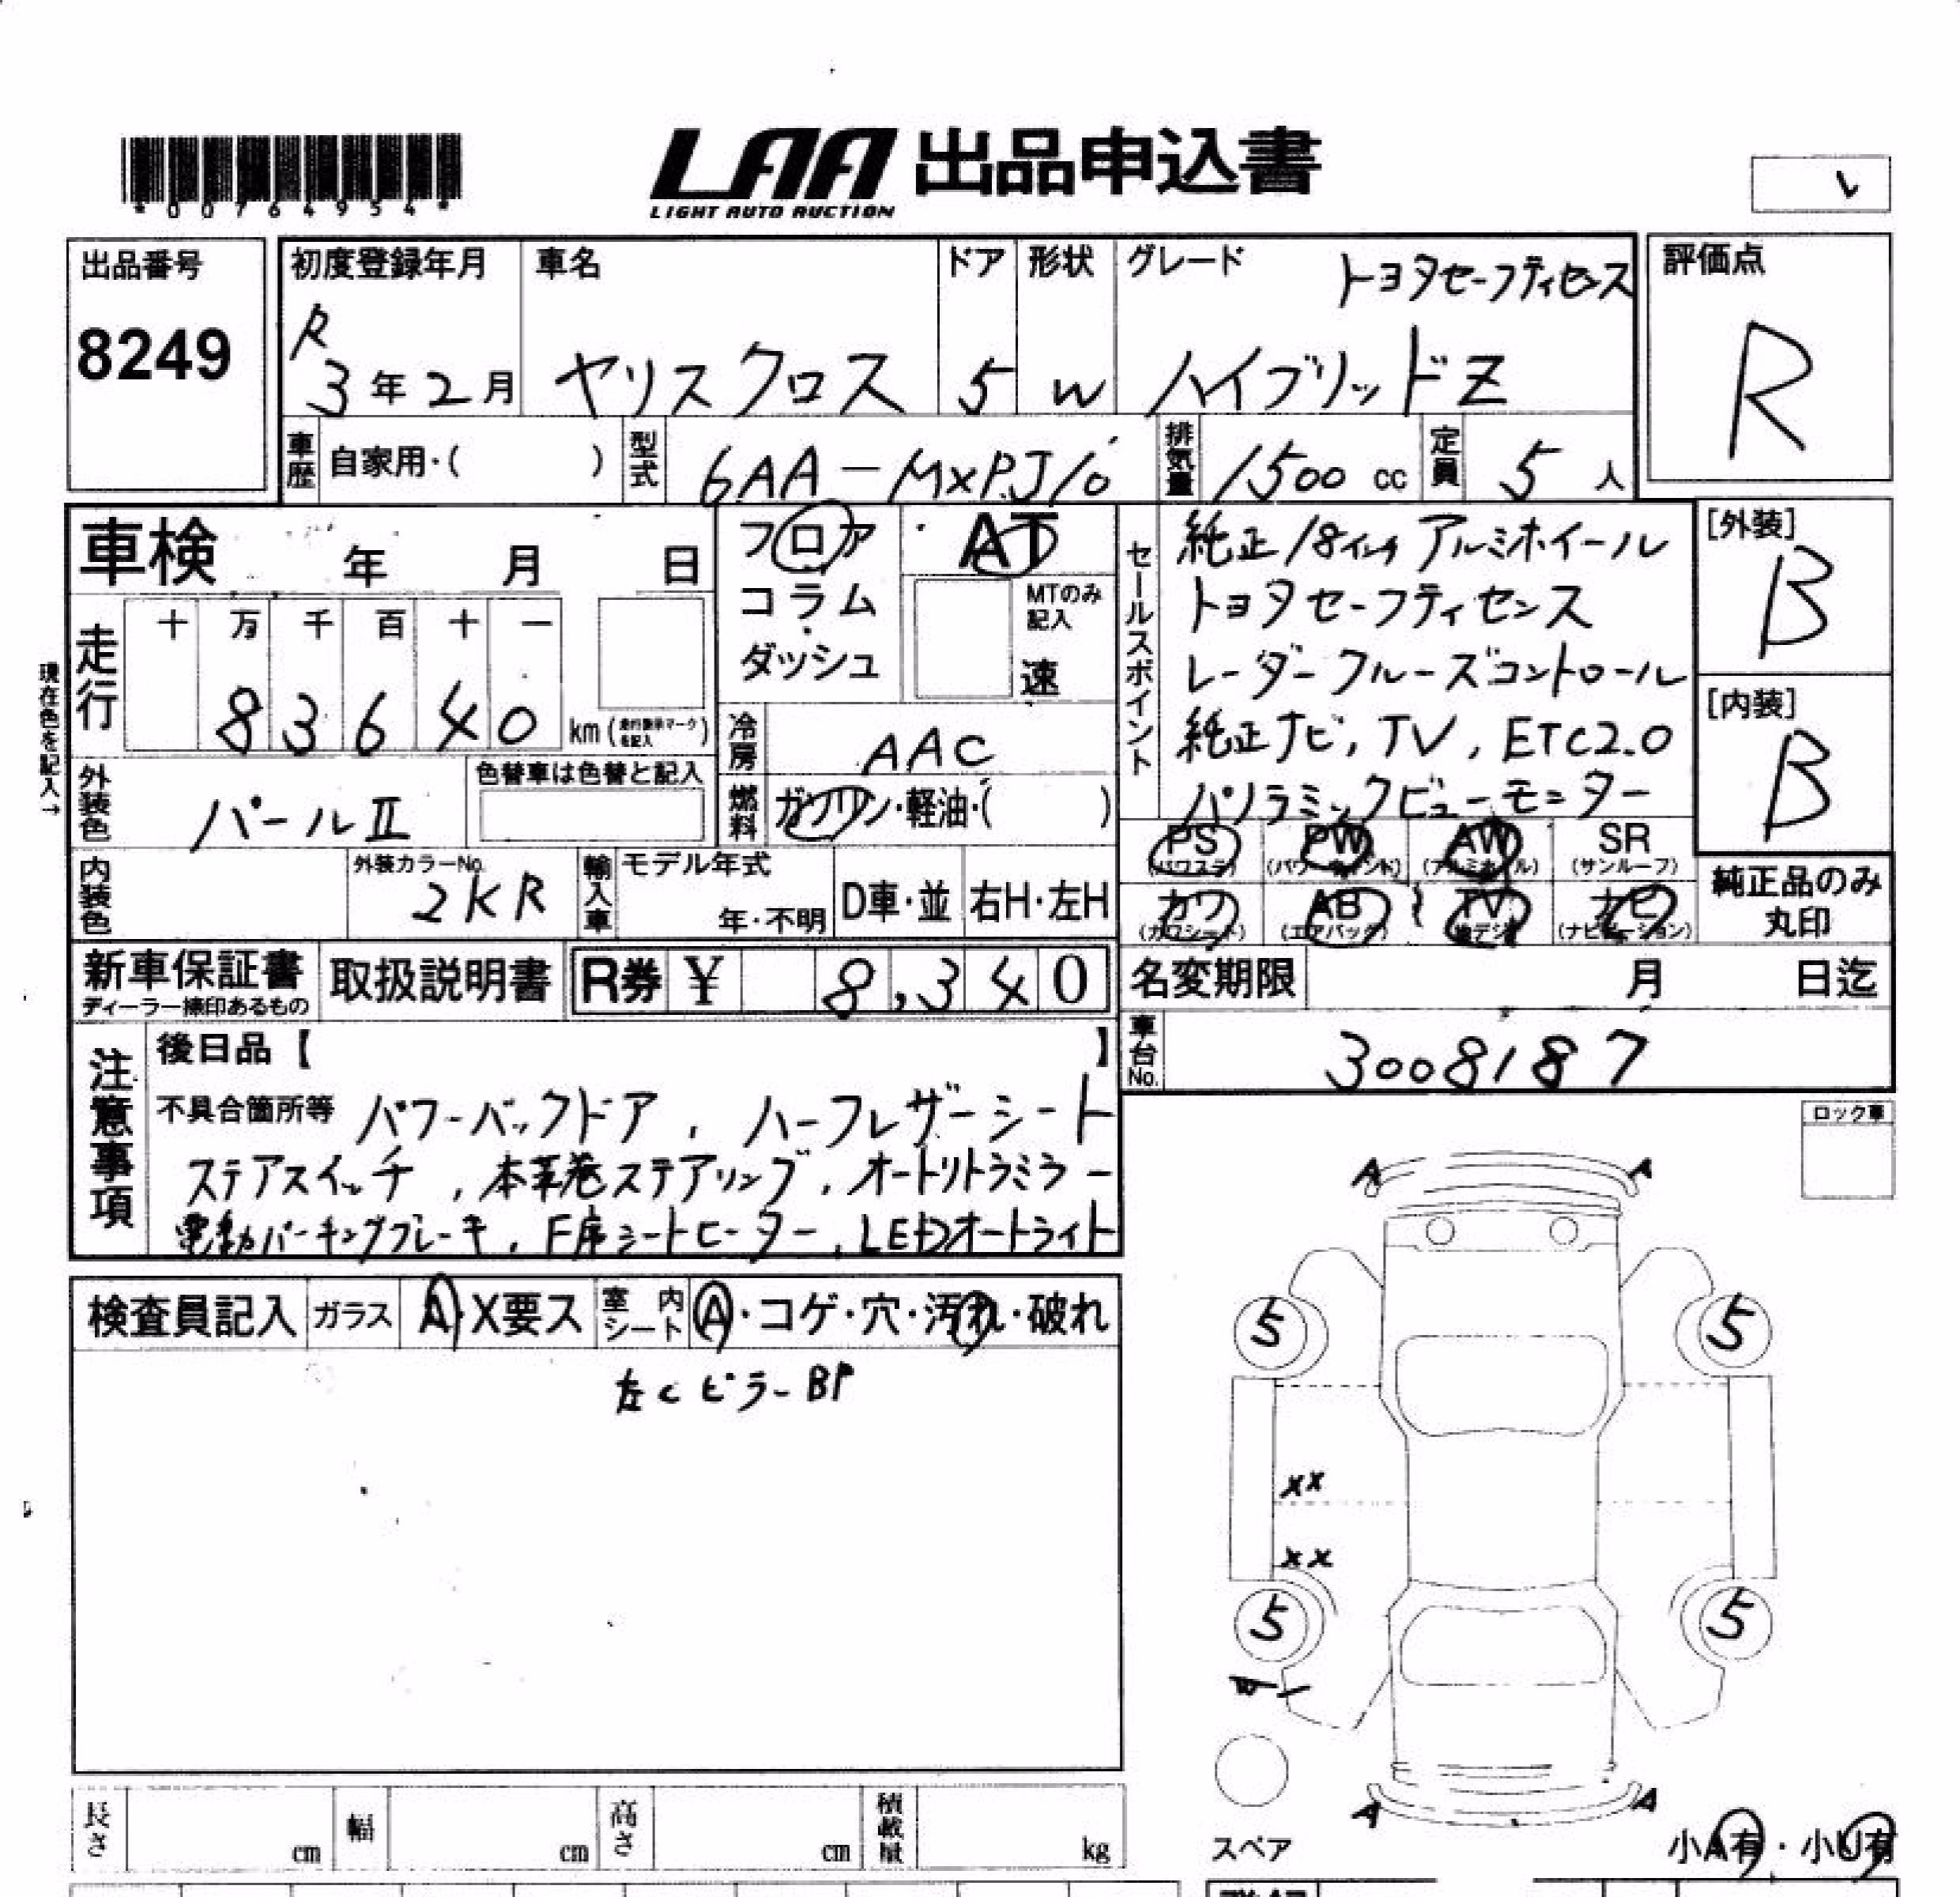 *00764954*
LAA 出品申込書
LIGHT AUTO AUCTION
出品番号
8249
初度登録年月
R
3年2月
車名
ヤリスクロス
ドア
5
形状
W
グレード
トヨタセーフティセンス
ハイブリッドZ
評価点
R
車歴 自家用・( )
型式 6AA-MXPJ10
排気量 1500 cc
定員 5 人
車検 年 月 日
フロア
コラム
ダッシュ
AT
MTのみ
記入
速
セールスポイント
純正18インチアルミホイール
トヨタセーフティセンス
レーダークルーズコントロール
純正ナビ, TV, ETC2.0
パノラミックビューモニター
[外装]
B
[内装]
B
現在色を記入→
走行
十 万 千 百 十 一
8 3 6 4 0 km (走行表示マークを記入)
冷房 AAC
燃料 ガソリン・軽油・( )
外装色 パールII
色替車は色替と記入
内装色
外装カラーNo.
2KR
輸入車
モデル年式
年・不明
D車・並
右H・左H
PS (パワステ)
PW (パワーウィンド)
AW (アルミホイル)
SR (サンルーフ)
カワ (カワシート)
AB (エアバック)
TV (地デジ)
ナビ (ナビゲーション)
純正品のみ
丸印
新車保証書
ディーラー捺印あるもの
取扱説明書
R券 ¥ 8,340
名変期限 月 日迄
車台No. 3008187
注意事項
後日品【 】
不具合箇所等 パワーバックドア, ハーフレザーシート
ステアスイッチ, 本革巻ステアリング, オートリトラミラー
電動パーキングブレーキ, F席シートヒーター, LEDオートライト
ロック車
検査員記入 ガラス A・X要ス 室内シート A・コゲ・穴・汚れ・破れ
左Cピラー BP
A A
5 5
XX
XX
5 5
A A
スペア
小A有・小U有
長さ cm 幅 cm 高さ cm 積載量 kg